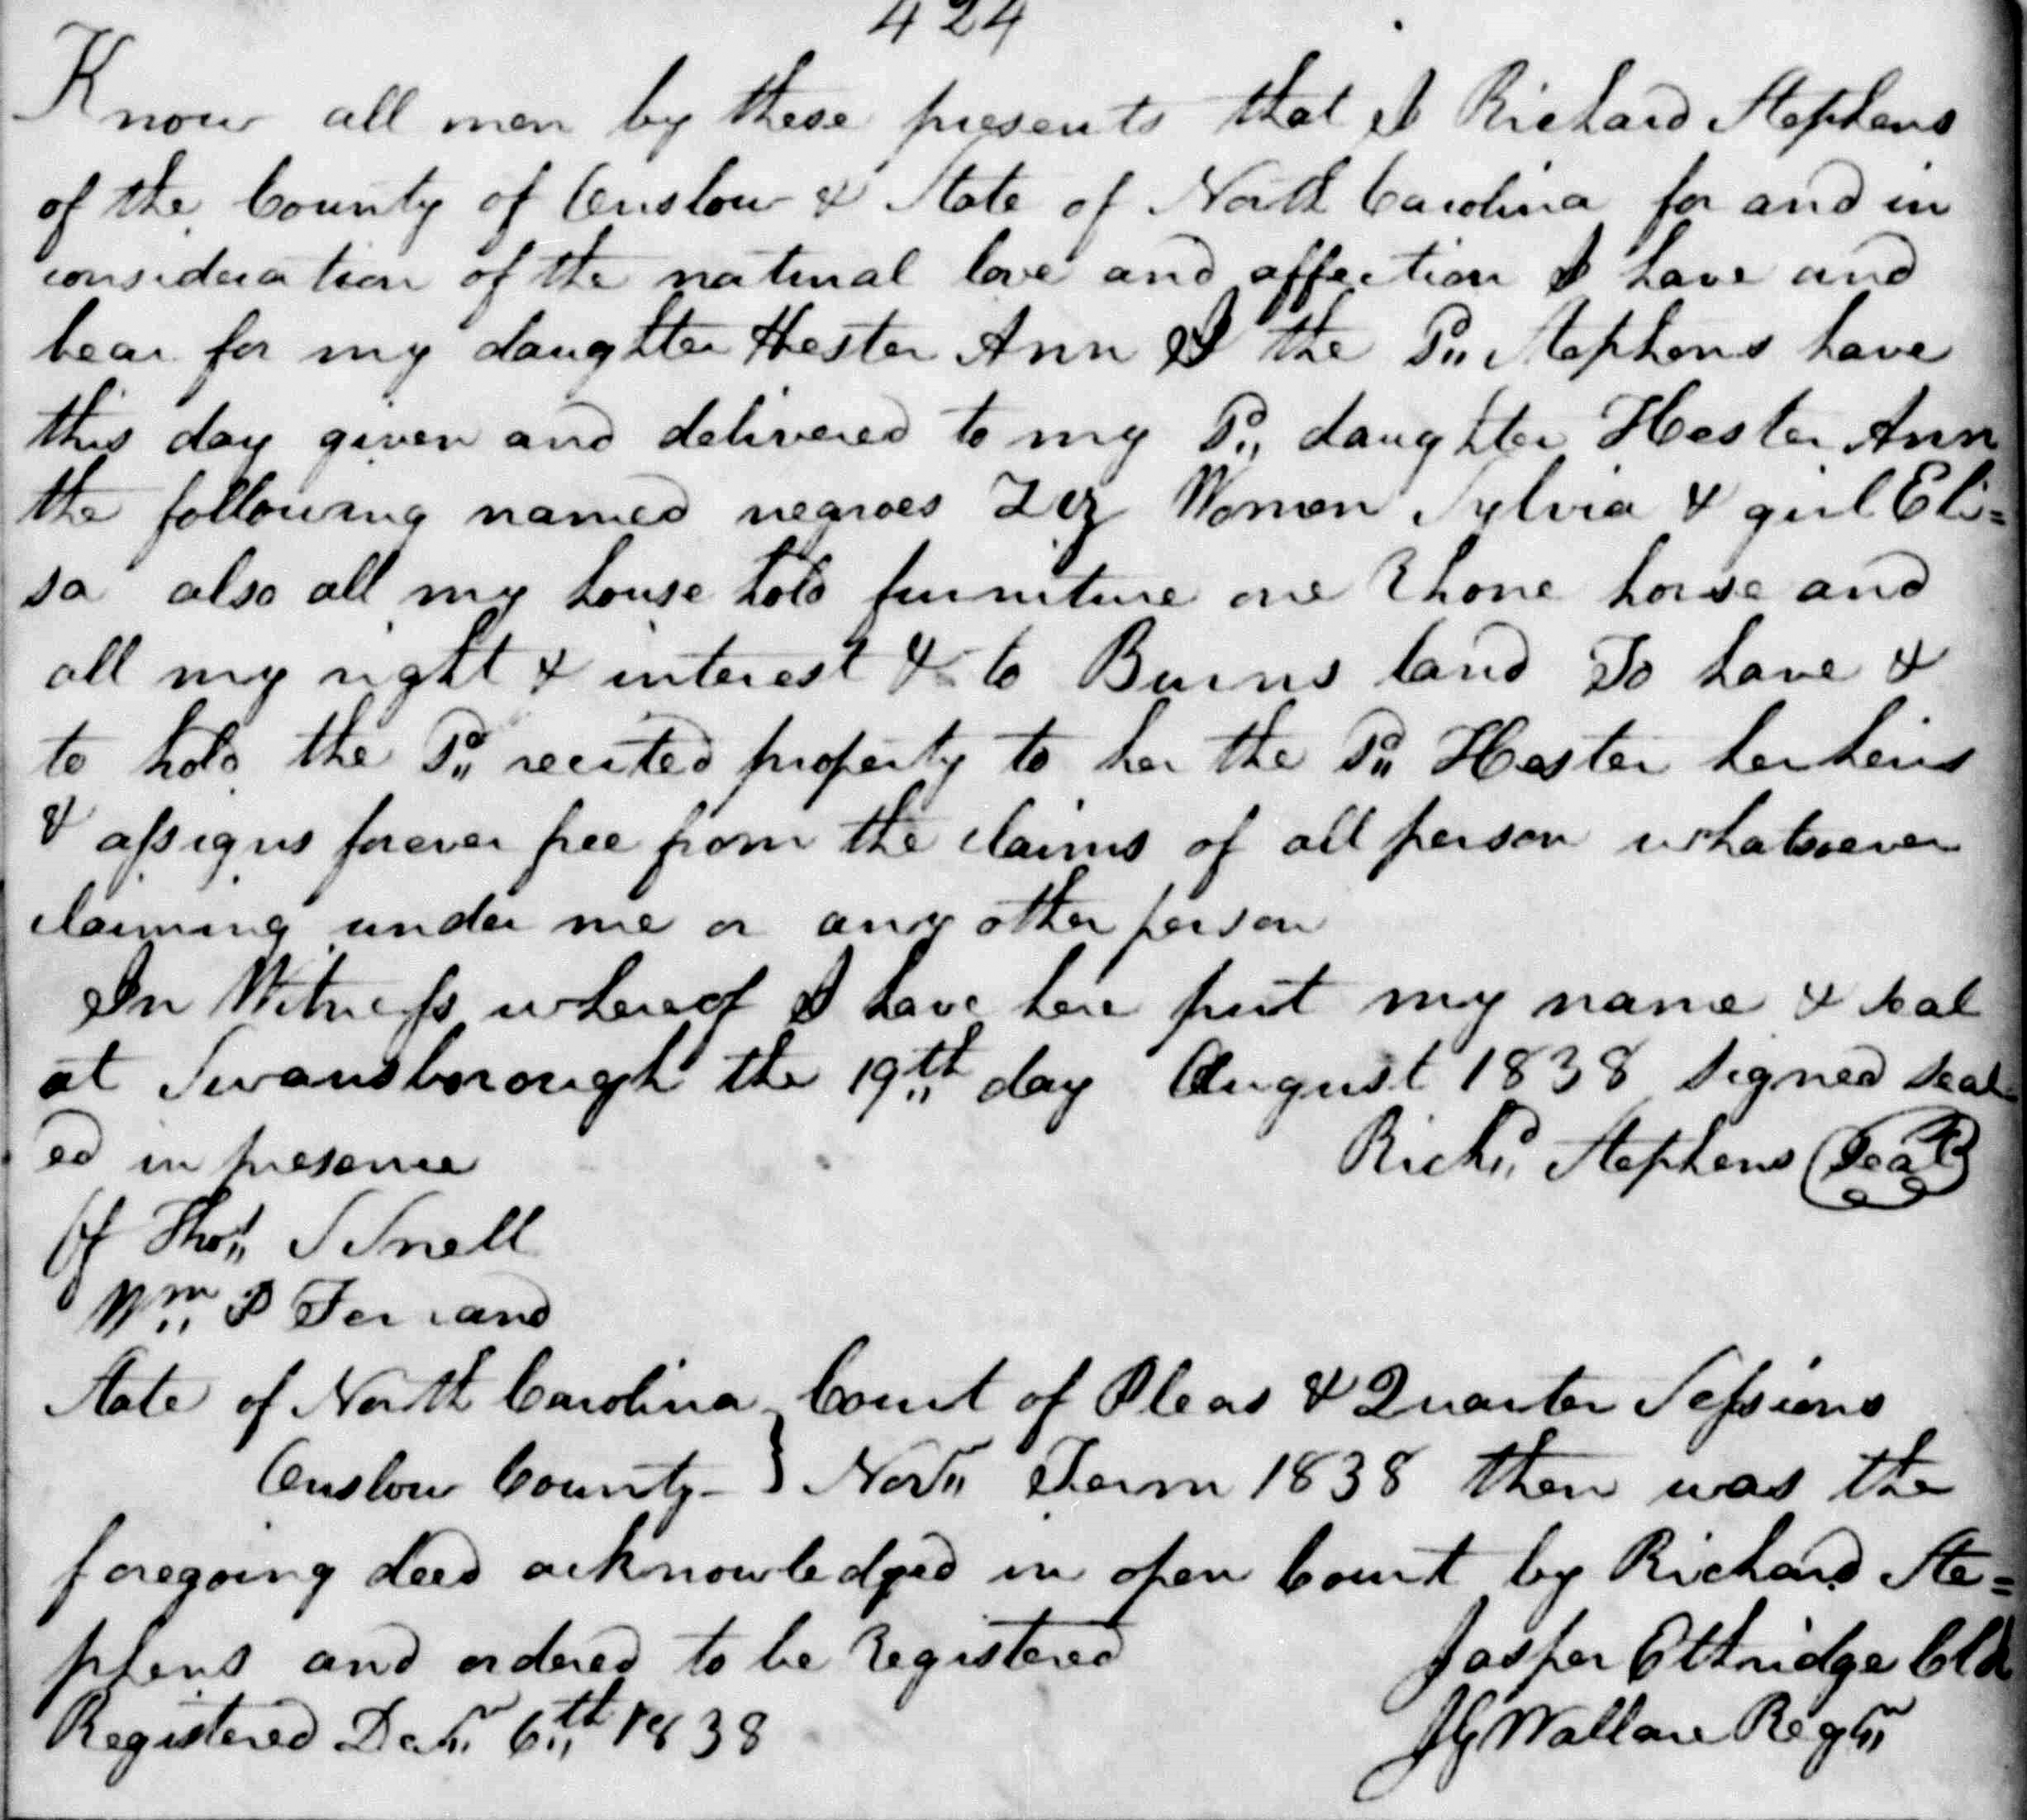 424
Know all men by these presents that I Richard Stephens
of the County of Onslow & State of North Carolina for and in
consideration of the natural love and affection I have and
bear for my daughter Hester Ann I the Sd Stephens have
this day given and delivered to my Sd daughter Hester Ann
the following named negroes Viz Women Sylvia & girl Eli=
sa also all my house hold furniture one Rhone horse and
all my right & interest & to Burns land To have &
to hold the Sd recited property to her the Sd Hester her heirs
& assigns forever free from the claims of all person whatsoever
claiming under me or any other person
In Witness whereof I have here put my name & seal
at Swansborough the 19th day August 1838 signed seal
ed in presence Richd Stephens Seal
Of Thos S Snell
Wm P Ferrand
State of North Carolina } Court of Pleas & Quarter Sessions
Onslow County - } Novr Term 1838 then was the
foregoing deed acknowledged in open Court by Richard Ste=
phens and ordered to be Registered Jasper Ettridge Clk
Registered Decr 6th 1838 JG Wallace Regtr